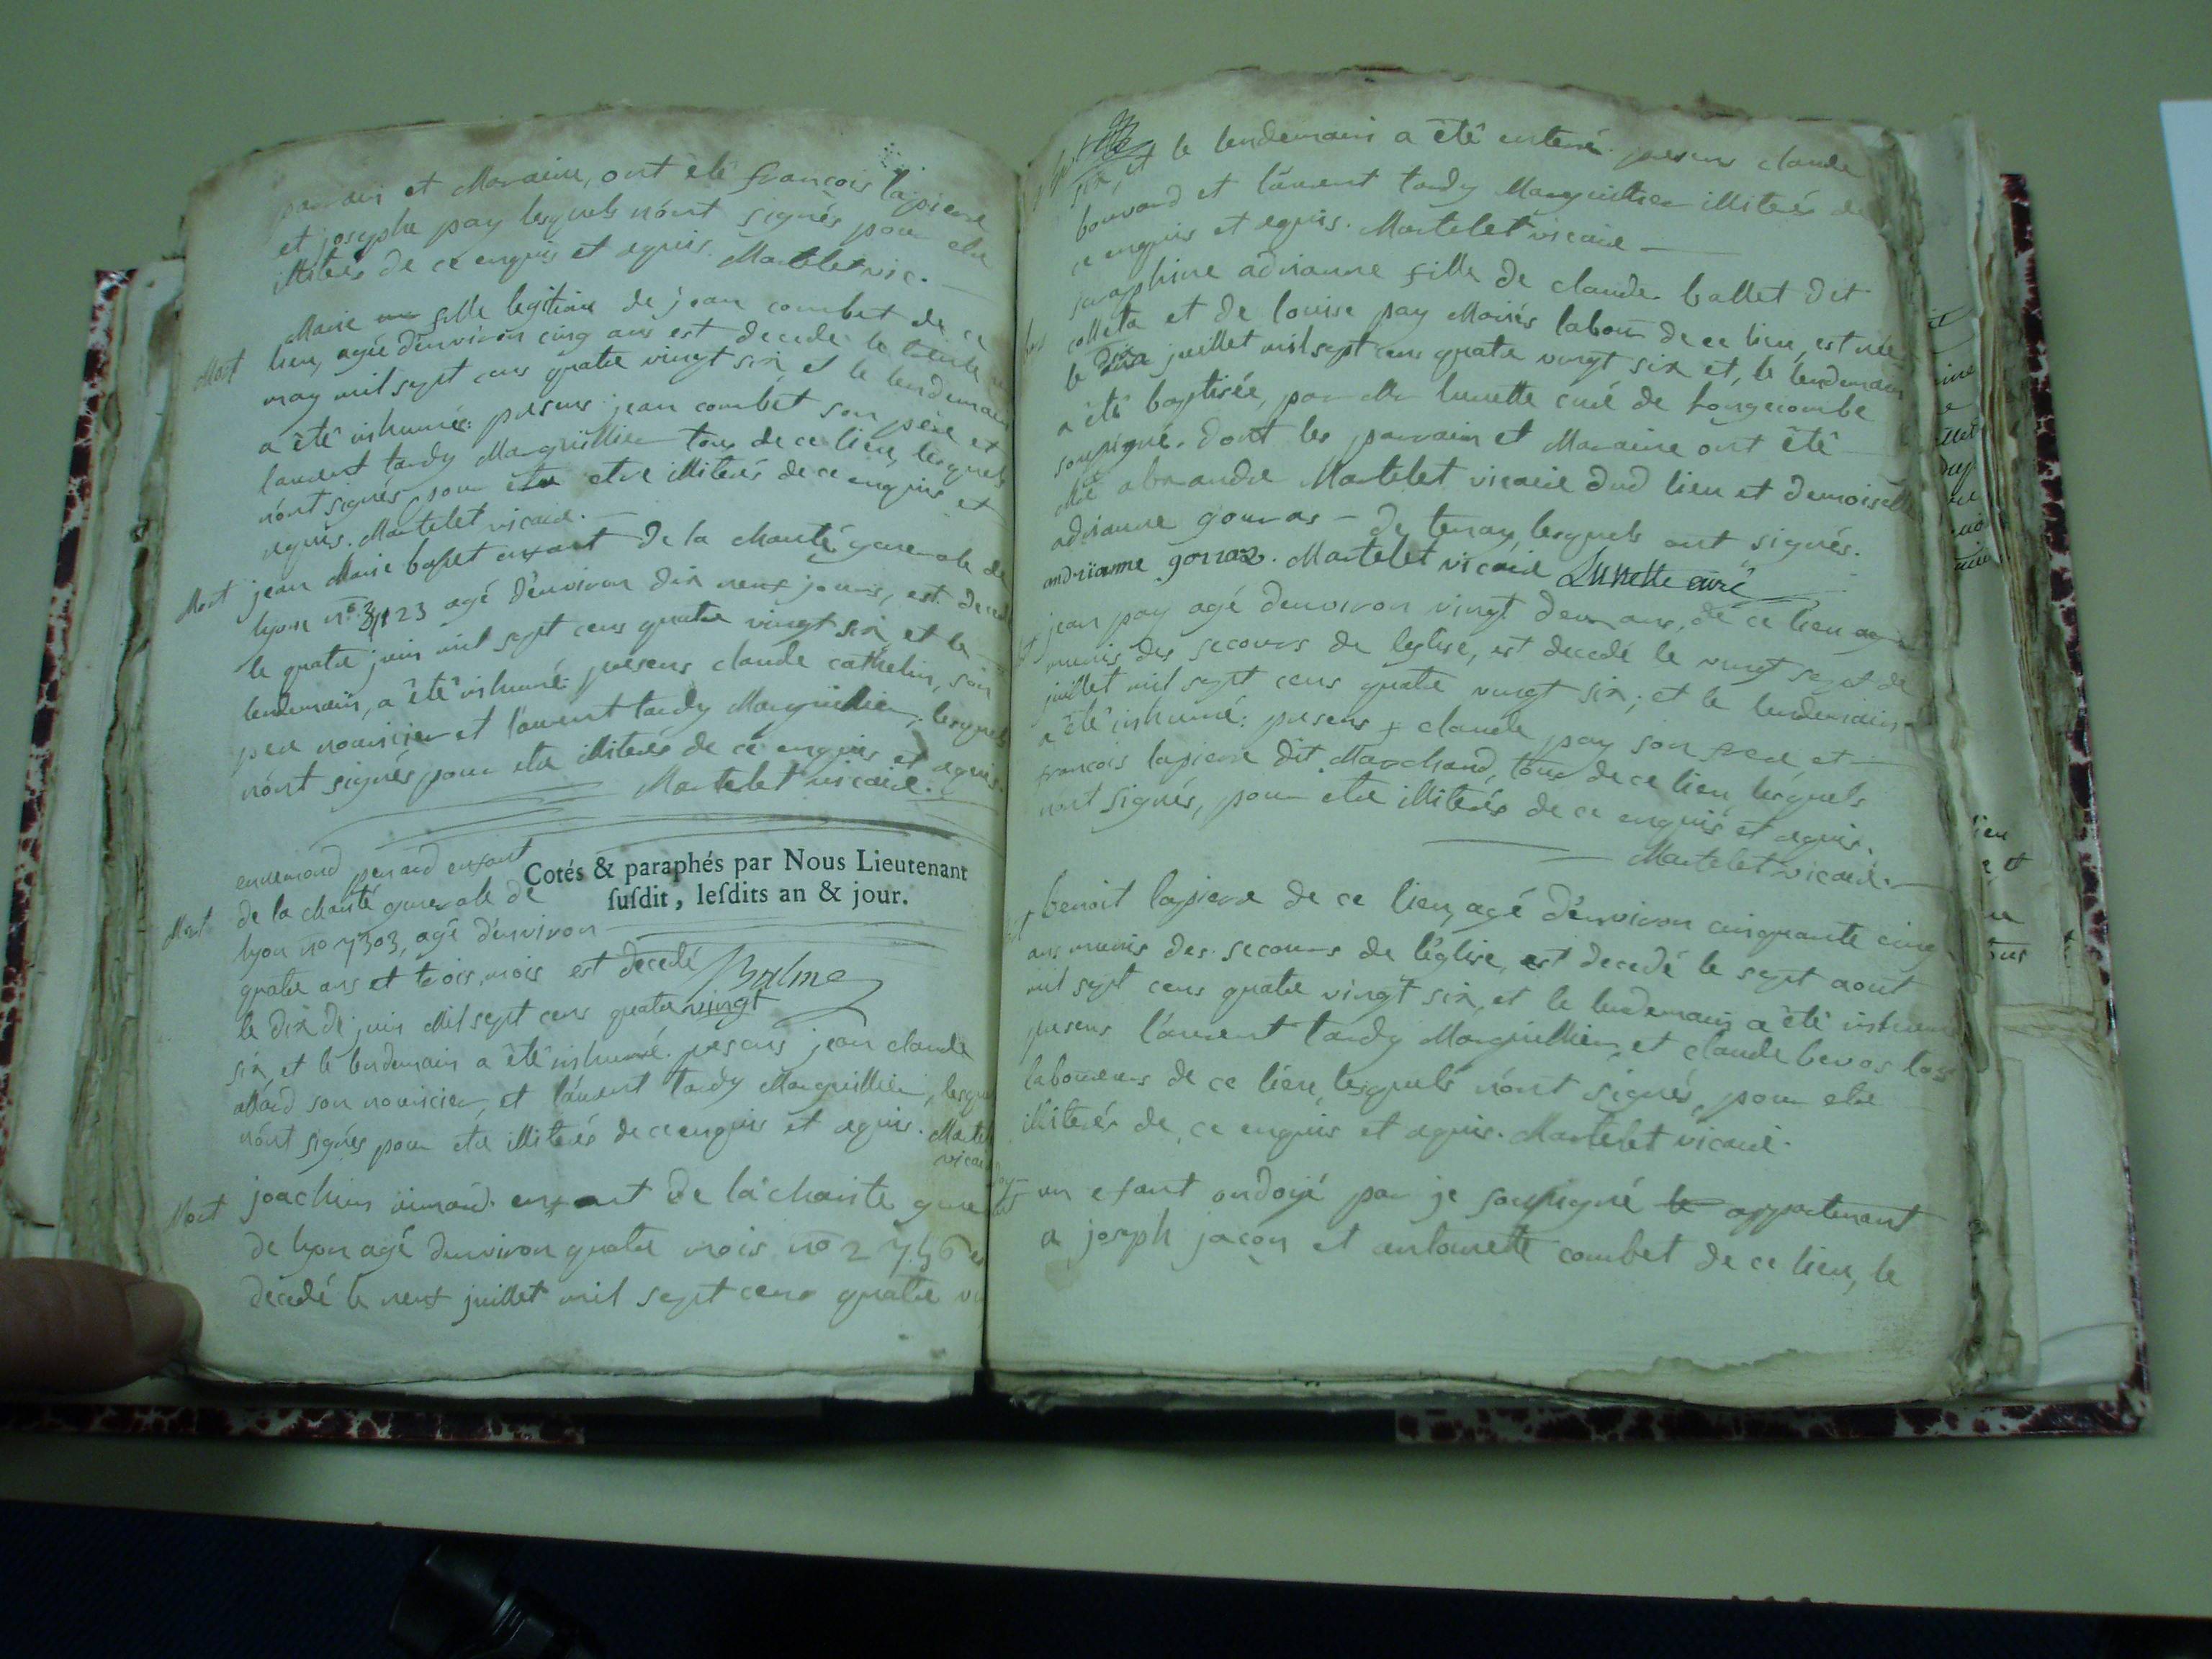 parrain et Maraine, ont été françois lapierre
et josephe pay lesquels nónt signés pour etre
illiterés de ce enquis et requis. Martelet vic.
Mort
Marie fille legitime de jean combet de ce
lieu, agée d'environ cinq ans est decedé le trente
may mil sept cens quatre vingt six et le lendemain
a été inhumée: presens jean combet son père et
laurent tardy Marguillier tous de ce lieu, lesquels
nónt signés pour etre illiterés de ce enquis et
requis. Martelet vicaire.
Mort
jean Marie enfant de la charité generale de
lyon nº 23 agé d'environ dix neuf jours, est decedé
le quatre juin mil sept cens quatre vingt six et le
lendemain, a été inhumé: presens claude cathelin, son
pere nouricier et laurent tardy Marguillier, lesquels
nónt signés pour etre illiterés de ce enquis et requis.
Martelet vicaire.
Cotés & paraphés par Nous Lieutenant
ſuſdit, leſdits an & jour.
Balme
Mort
ennemond penard enfant
de la charité generale de
lyon nº 7303, agé d'environ
quatre ans et trois mois est decedé
le dix de juin Mil sept cens quatre vingt
six et le lendemain a été inhumé. presens jean claude
allard son nouricier, et laurent tardy Marguillier, lesqu
nónt signés pour etre illiterés de ce enquis et requis. Martel
vicai
Mort
joachim enfant de la charité gene
de lyon agé denviron quatre mois nº
decedé le neuf juillet mil sept cens quatre vi
six, et le lendemain a été enterré. presens claude
bouvard et laurent tardy Marguillier illiterés de
ce enquis et requis. Martelet vicaire
seraphine adrianne fille de claude ballet dit
colleta et de louise pay Mariés labou de ce lieu, est née
le juillet mil sept cens quatre vingt six et, le lendemain
a été baptisée, par Mr lunette curé de longecombe
soussigné. Dont les parrain et Maraine ont été
Me Martelet vicaire dud lieu et demoiselle
adrianne gouras - de tenay, lesquels ont signés.
andrianne gorraz. Martelet vicaire Lunette curé
jean pay agé denviron vingt deux ans, de ce lieu
munis des secours de leglise, est decedé le vingt sept de
juillet mil sept cens quatre vingt six; et le lendemain
a été inhumé: presens claude pay son frere, et
francois lapierre dit Marchand, tous de ce lieu, lesquels
nont signés, pour etre illiterés de ce enquis et requis.
Martelet vicaire.
benoit lapierre de ce lieu, agé d'environ cinquante cinq
ans munis des secours de l'église, est decedé le sept aout
mil sept cens quatre vingt six, et le lendemain a été inhumé
presens laurent tardy Marguillier, et claude
laboureurs de ce lieu, lesquels nónt signés, pour etre
illiterés de ce enquis et requis. Martelet vicaire.
un efant ondoyé par je soussigné le appartenant
a joseph jacon et antoinette combet de ce lieu, le